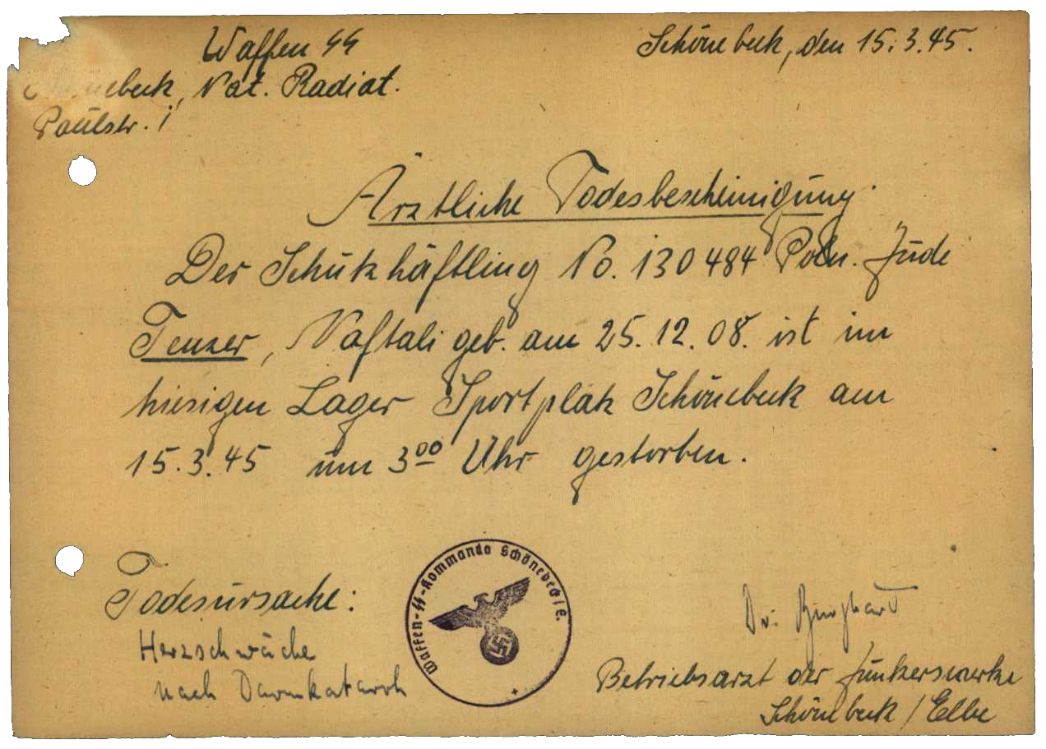 Waffen SS
Schönebeck, den 15.3.45.
Schönebeck, Nat. Radiat.
Paulstr. 1
Ärztliche Todesbescheinigung.
Der Schutzhäftling No. 130484 Poln. Jude
Tenzer, Naftali geb. am 25.12.08. ist im
hiesigen Lager Sportplatz Schönebeck am
15.3.45 um 3⁰⁰ Uhr gestorben.
Todesursache:
Herzschwäche
nach Darmkatarrh
Waffen-SS-Kommando Schönebeck/E.
Dr.
Betriebsarzt der Junkerswerke
Schönebeck / Elbe